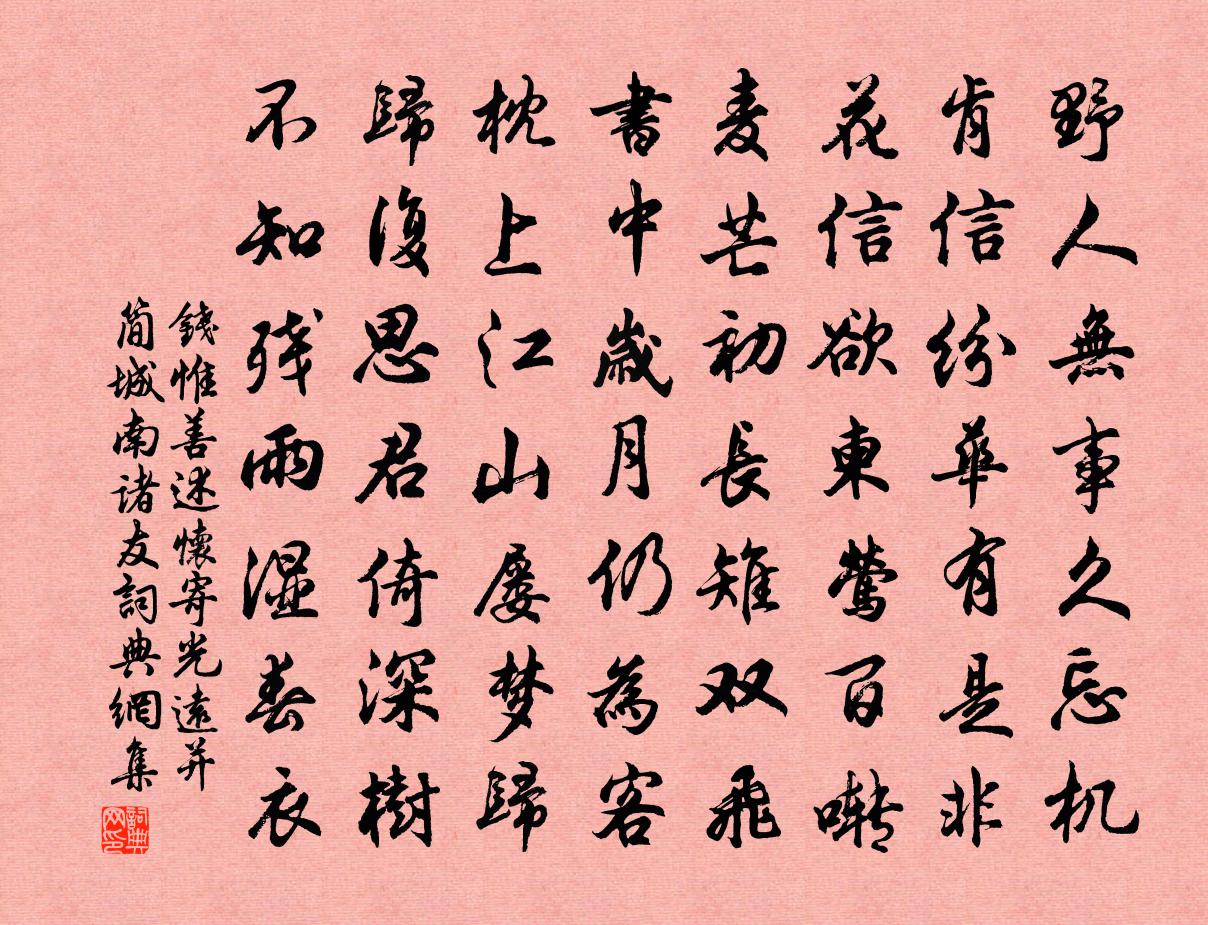 野人無事久忘机
肯信纷華有是非
花信欲東鶯百啭
麦芒初長雉双飛
書中歲月仍為客
枕上江山屡梦歸
歸復思君倚深樹
不知残雨湿春衣
錢惟善述懷寄光遠并
简城南诸友詞典網集
詞典
网印